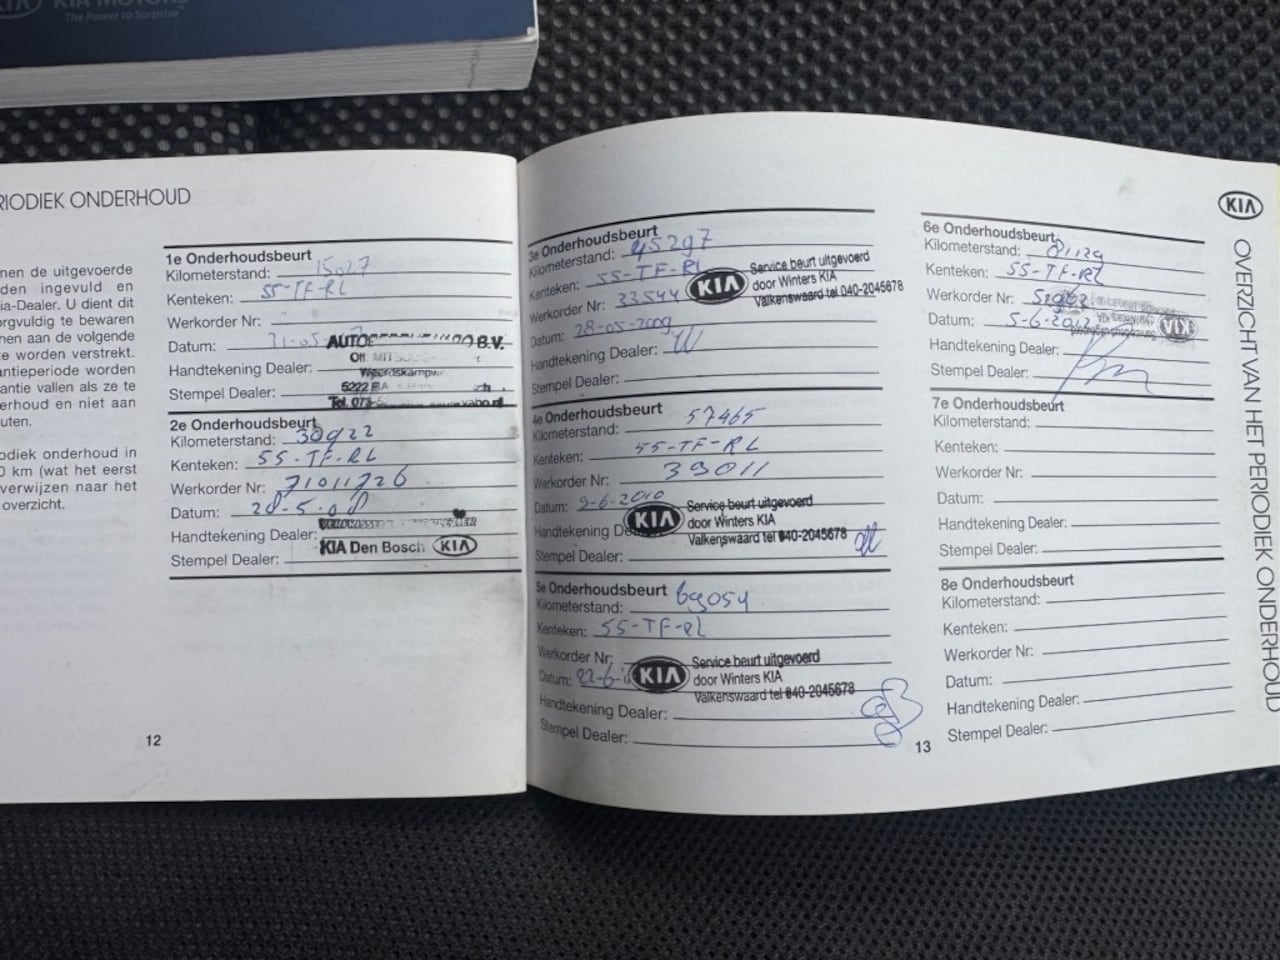 KIA MOTORS
The Power to Surprise
RIODIEK ONDERHOUD
nen de uitgevoerde
den ingevuld en
ia-Dealer. U dient dit
orgvuldig te bewaren
nen aan de volgende
te worden verstrekt.
antieperiode worden
antie vallen als ze te
erhoud en niet aan
uten.
odiek onderhoud in
0 km (wat het eerst
verwijzen naar het
overzicht.
1e Onderhoudsbeurt
Kilometerstand: 15027
Kenteken: 55-TF-RL
Werkorder Nr:
Datum: 31-05
B.V.
Handtekening Dealer:
Stempel Dealer:
5222 BA
Tel. 073-
2e Onderhoudsbeurt
Kilometerstand: 30922
Kenteken: 55-TF-RL
Werkorder Nr: 71011726
Datum: 28-5-08
Handtekening Dealer:
KIA Den Bosch KIA
Stempel Dealer:
12
3e Onderhoudsbeurt
Kilometerstand: 45297
Kenteken: 55-TF-RL
Werkorder Nr: 33544
KIA Service beurt uitgevoerd
door Winters KIA
Valkenswaard tel 040-2045678
Datum: 28-05-2009
Handtekening Dealer:
Stempel Dealer:
4e Onderhoudsbeurt
Kilometerstand: 57465
Kenteken: 55-TF-RL
Werkorder Nr: 39011
Datum: 2-6-2010
KIA Service beurt uitgevoerd
door Winters KIA
Valkenswaard tel 040-2045678
Handtekening De
Stempel Dealer:
5e Onderhoudsbeurt
Kilometerstand: 69054
Kenteken: 55-TF-RL
Werkorder Nr:
Datum: 22-6-
KIA Service beurt uitgevoerd
door Winters KIA
Valkenswaard tel 040-2045678
Handtekening Dealer:
Stempel Dealer:
13
6e Onderhoudsbeurt
Kilometerstand: 81129
Kenteken: 55-TF-RL
Werkorder Nr:
Datum: 5-6-2012
KIA
Handtekening Dealer:
Stempel Dealer:
7e Onderhoudsbeurt
Kilometerstand:
Kenteken:
Werkorder Nr:
Datum:
Handtekening Dealer:
Stempel Dealer:
8e Onderhoudsbeurt
Kilometerstand:
Kenteken:
Werkorder Nr:
Datum:
Handtekening Dealer:
Stempel Dealer:
KIA
OVERZICHT VAN HET PERIODIEK ONDERHOUD